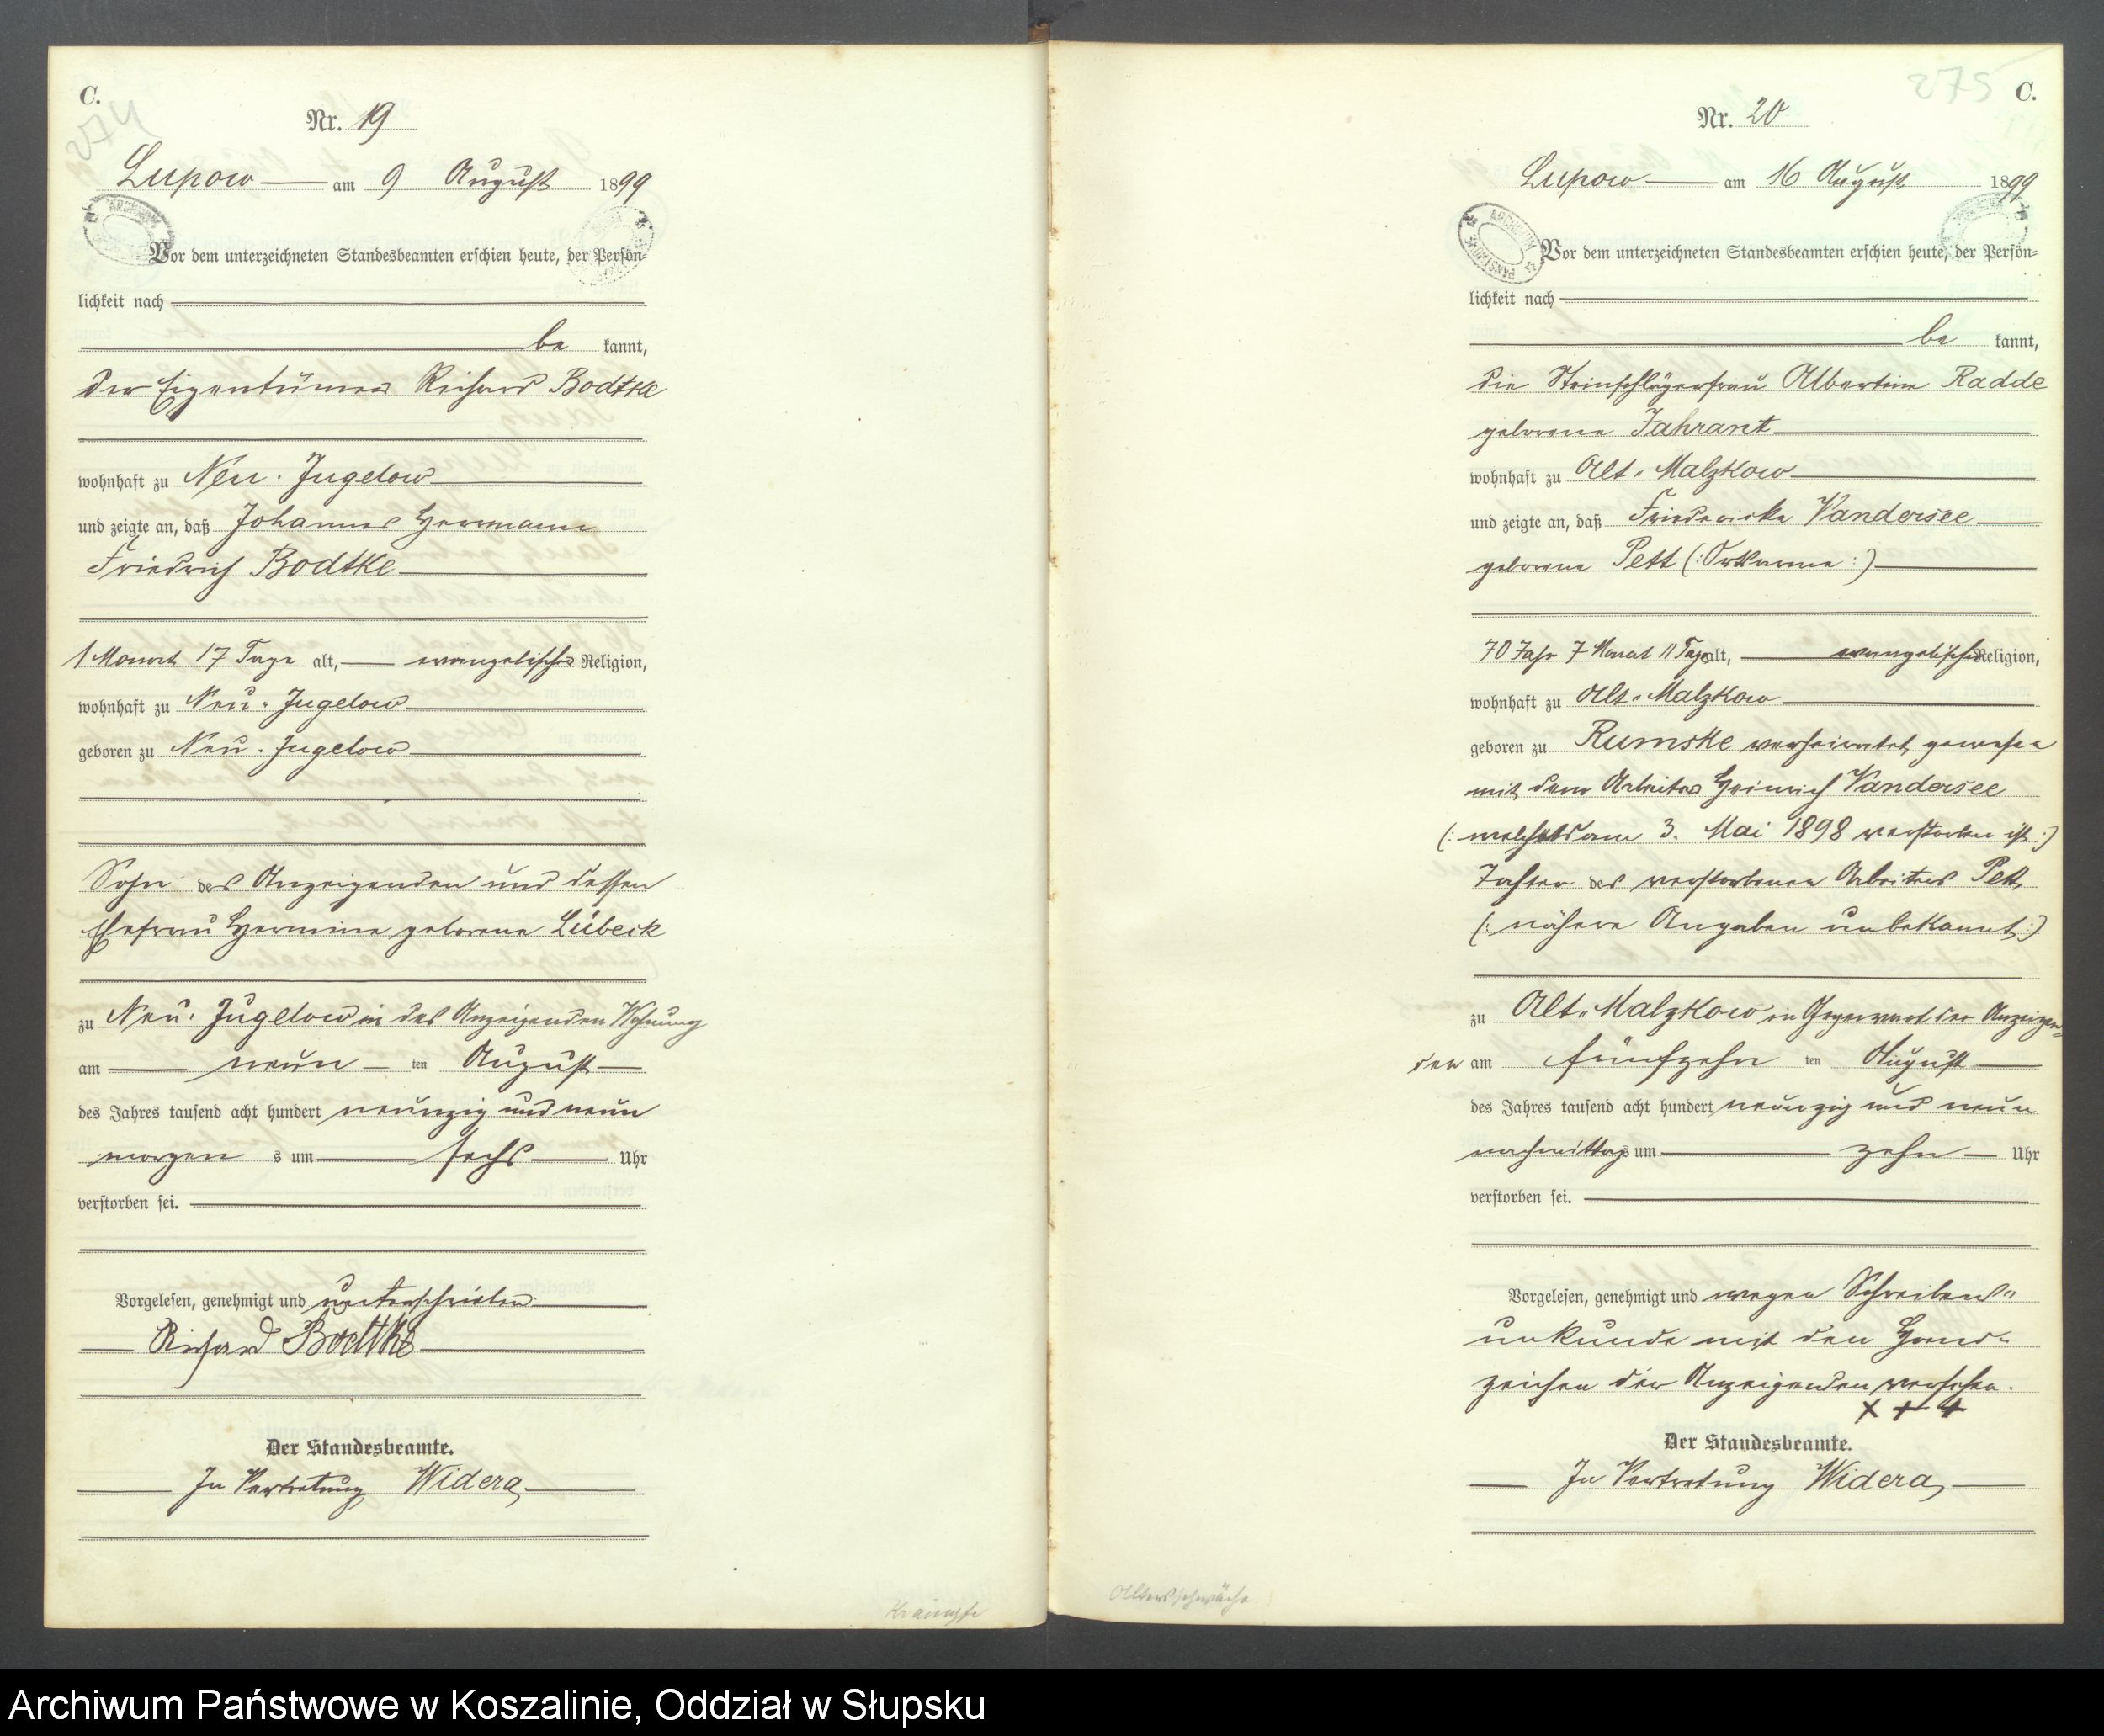 C.
Nr. 19
Lupow am 9 August 1899
Vor dem unterzeichneten Standesbeamten erschien heute, der Persön-
lichkeit nach
be kannt,
der Eigentümer Richard Bodtke
wohnhaft zu Neu-Jugelow
und zeigte an, daß Johannes Hermann
Friedrich Bodtke
1 Monat 17 Tage alt, evangelischer Religion,
wohnhaft zu Neu-Jugelow
geboren zu Neu-Jugelow
Sohn des Anzeigenden und dessen
Ehefrau Hermine geborene Lübeck
zu Neu-Jugelow in des Anzeigenden Wohnung
am neun ten August
des Jahres tausend acht hundert neunzig und neun
morgen s um sechs Uhr
verstorben sei.
Vorgelesen, genehmigt und unterschrieben
Richard Bodtke
Der Standesbeamte.
In Vertretung Widera
Krämpfe
275 C.
Nr. 20
Lupow am 16 August 1899
ARCHIWUM PAŃSTWOWE
Vor dem unterzeichneten Standesbeamten erschien heute, der Persön-
lichkeit nach
be kannt,
die Steinschlägerfrau Albertine Radde
geborene Jahrant
wohnhaft zu Alt-Malzkow
und zeigte an, daß Friedericke Vandersee
geborene Pett (: Ortsarme :)
70 Jahr 7 Monat 11 Tage alt, evangelischer Religion,
wohnhaft zu Alt-Malzkow
geboren zu Rumske verheiratet gewesen
mit dem Arbeiter Heinrich Vandersee
(: welcher am 3. Mai 1898 verstorben ist :)
Tochter des verstorbenen Arbeiters Pett
(: nähere Angaben unbekannt :)
zu Alt-Malzkow in Gegenwart der Anzeigen-
den am fünfzehn ten August
des Jahres tausend acht hundert neunzig und neun
nachmittags um zehn Uhr
verstorben sei.
Vorgelesen, genehmigt und wegen Schreibens-
unkunde mit den Hand-
zeichen der Anzeigenden versehen.
x + +
Der Standesbeamte.
In Vertretung Widera
Altersschwäche
Archiwum Państwowe w Koszalinie, Oddział w Słupsku